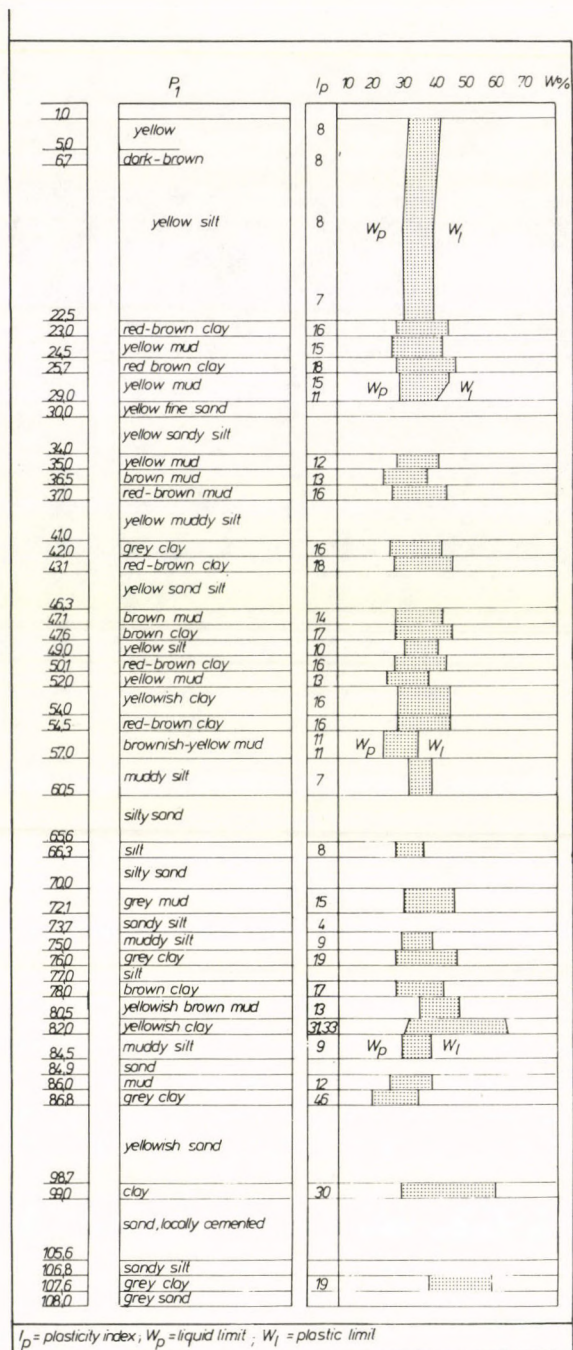 P1 Ip 10 20 30 40 50 60 70 W%
1,0
yellow 8
5,0
6,7 dark-brown 8
yellow silt 8 Wp Wl
7
22,5
23,0 red-brown clay 16
24,5 yellow mud 15
25,7 red brown clay 18
yellow mud 15 Wp Wl
29,0 11
30,0 yellow fine sand
yellow sandy silt
34,0
35,0 yellow mud 12
36,5 brown mud 13
37,0 red-brown mud 16
yellow muddy silt
41,0
42,0 grey clay 16
43,1 red-brown clay 18
yellow sand silt
46,3
47,1 brown mud 14
47,6 brown clay 17
49,0 yellow silt 10
50,1 red-brown clay 16
52,0 yellow mud 13
yellowish clay 16
54,0
54,5 red-brown clay 16
brownish-yellow mud 11 Wp Wl
57,0 11
muddy silt 7
60,5
silty sand
65,6
66,3 silt 8
silty sand
70,0
grey mud 15
72,1
73,7 sandy silt 4
75,0 muddy silt 9
76,0 grey clay 19
77,0 silt
78,0 brown clay 17
80,5 yellowish brown mud 13
82,0 yellowish clay 31,33
muddy silt 9 Wp Wl
84,5
84,9 sand
86,0 mud 12
86,8 grey clay 46
yellowish sand
98,7
99,0 clay 30
sand, locally cemented
105,6
106,8 sandy silt
107,6 grey clay 19
108,0 grey sand
Ip = plasticity index; Wp = liquid limit; Wl = plastic limit